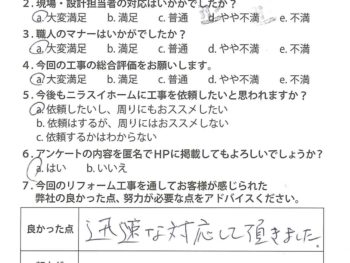 2. 現場・設計担当者の対応はいかがでしたか?
a.大変満足 b. 満足 c. 普通 d. やや不満 e. 不満
3. 職人のマナーはいかがでしたか?
a.大変満足 b. 満足 c. 普通 d. やや不満 e. 不満
4. 今回の工事の総合評価をお願いします。
a.大変満足 b. 満足 c. 普通 d. やや不満 e. 不満
5. 今後もニラスイホームに工事を依頼したいと思われますか?
a.依頼したいし、周りにもおススメしたい
b. 依頼はするが、周りにはおススメしない
c. 依頼するかはわからない
6. アンケートの内容を匿名でHPに掲載してもよろしいでしょうか?
a.はい b. いいえ
7. 今回のリフォーム工事を通してお客様が感じられた
弊社の良かった点、努力が必要な点をアドバイスください。
良かった点 迅速な対応して頂きました。